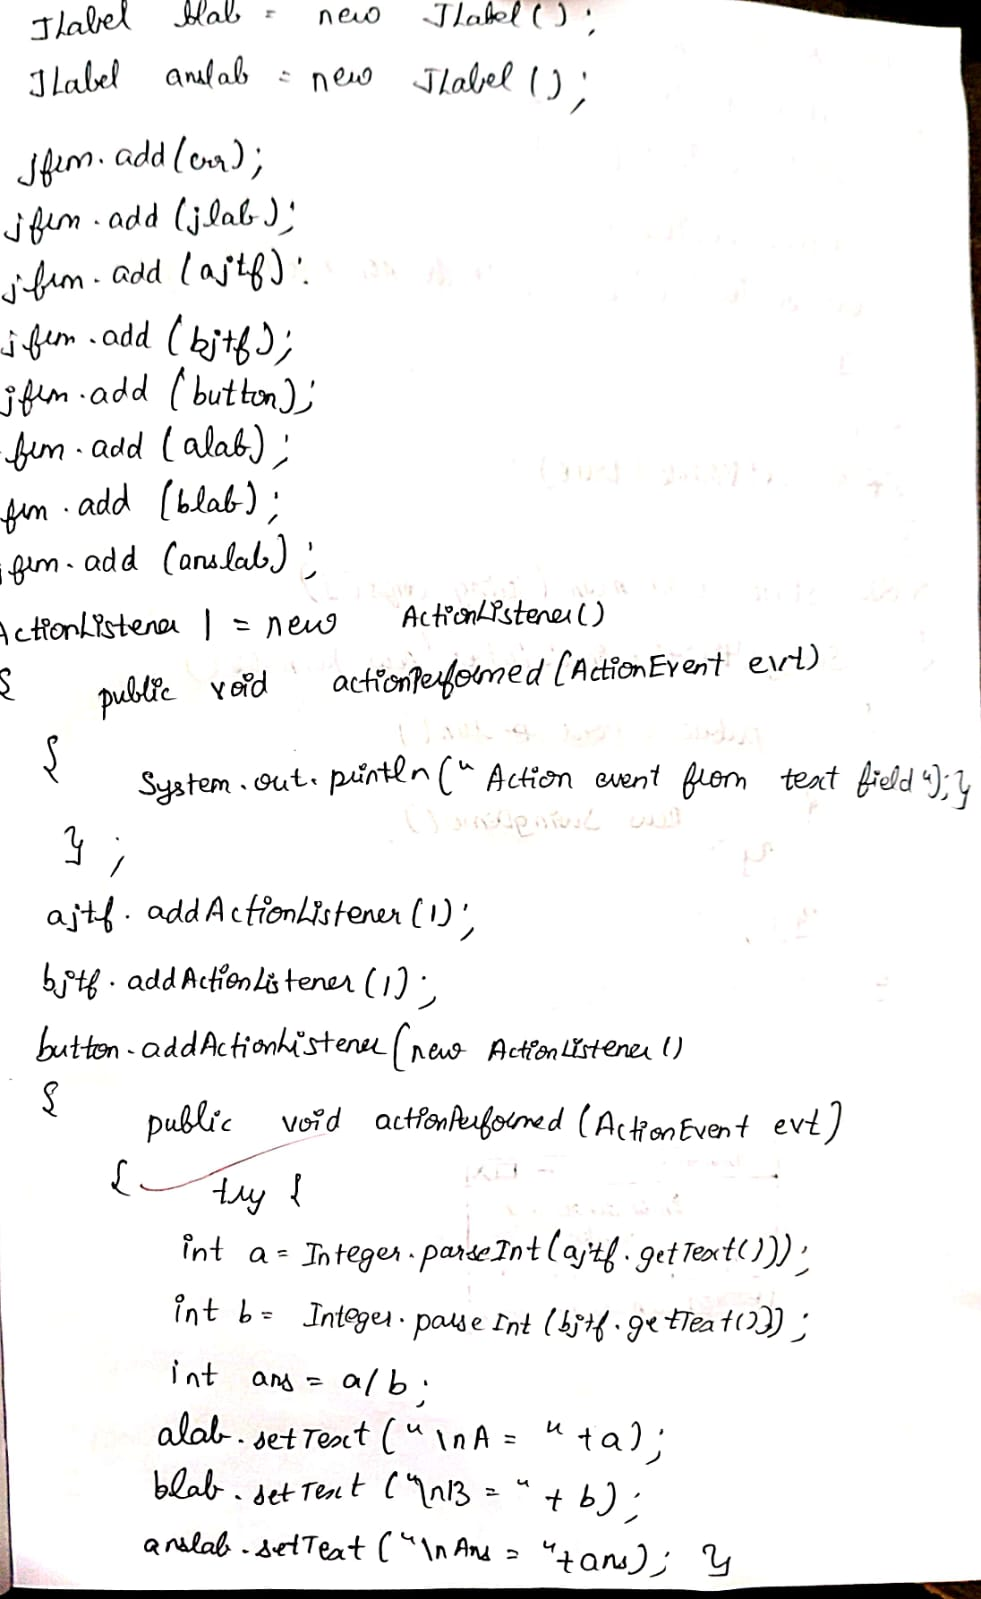 JLabel blab = new JLabel();
JLabel anslab = new JLabel();
jfrm.add(err);
jfrm.add(jlab);
jfrm.add(ajtf):
jfrm.add(bjtf);
jfrm.add(button);
frm.add(alab);
frm.add(blab);
jfrm.add(anslab);
ActionListener l = new ActionListener()
{ public void actionPerformed(ActionEvent evt)
{
System.out.println("Action event from text field");}
};
ajtf.addActionListener(l);
bjtf.addActionListener(l);
button.addActionListener(new ActionListener()
{
public void actionPerformed(ActionEvent evt)
{ try {
int a = Integer.parseInt(ajtf.getText());
int b = Integer.parseInt(bjtf.getText());
int ans = a/b;
alab.setText("\nA = " +a);
blab.setText("\nB = " + b);
anslab.setText("\nAns = "+ans); }